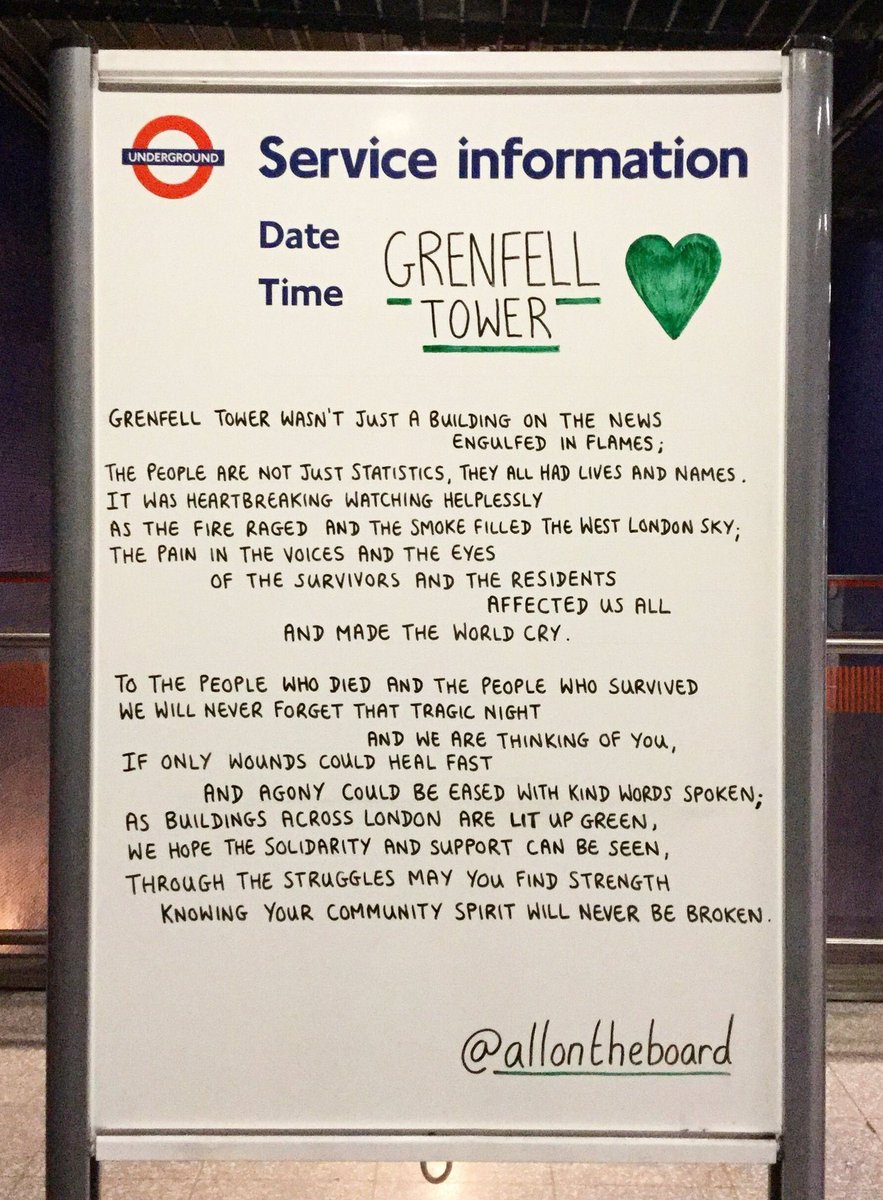 UNDERGROUND
Service information
Date
Time
GRENFELL
TOWER
GRENFELL TOWER WASN'T JUST A BUILDING ON THE NEWS
ENGULFED IN FLAMES;
THE PEOPLE ARE NOT JUST STATISTICS, THEY ALL HAD LIVES AND NAMES.
IT WAS HEARTBREAKING WATCHING HELPLESSLY
AS THE FIRE RAGED AND THE SMOKE FILLED THE WEST LONDON SKY;
THE PAIN IN THE VOICES AND THE EYES
OF THE SURVIVORS AND THE RESIDENTS
AFFECTED US ALL
AND MADE THE WORLD CRY.
TO THE PEOPLE WHO DIED AND THE PEOPLE WHO SURVIVED
WE WILL NEVER FORGET THAT TRAGIC NIGHT
AND WE ARE THINKING OF YOU,
IF ONLY WOUNDS COULD HEAL FAST
AND AGONY COULD BE EASED WITH KIND WORDS SPOKEN;
AS BUILDINGS ACROSS LONDON ARE LIT UP GREEN,
WE HOPE THE SOLIDARITY AND SUPPORT CAN BE SEEN,
THROUGH THE STRUGGLES MAY YOU FIND STRENGTH
KNOWING YOUR COMMUNITY SPIRIT WILL NEVER BE BROKEN.
@allontheboard